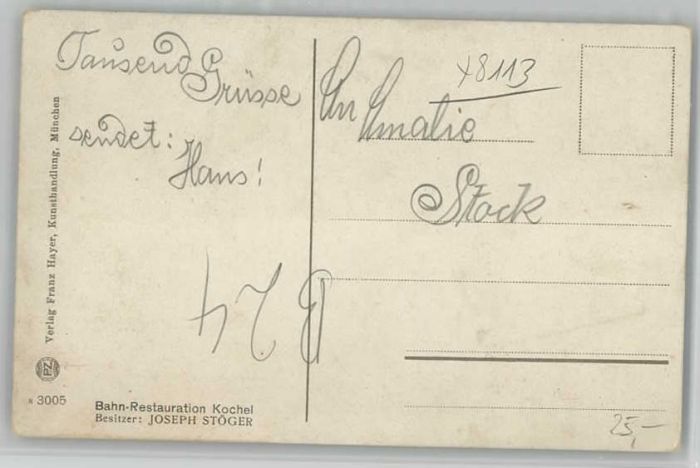 Tausend Grüsse
sendet:
Hans!
An Amalie
Stock
x8113
B24
Verlag Franz Hayer, Kunsthandlung, München
PZ
R 3005
Bahn-Restauration Kochel
Besitzer: JOSEPH STÖGER
25,-